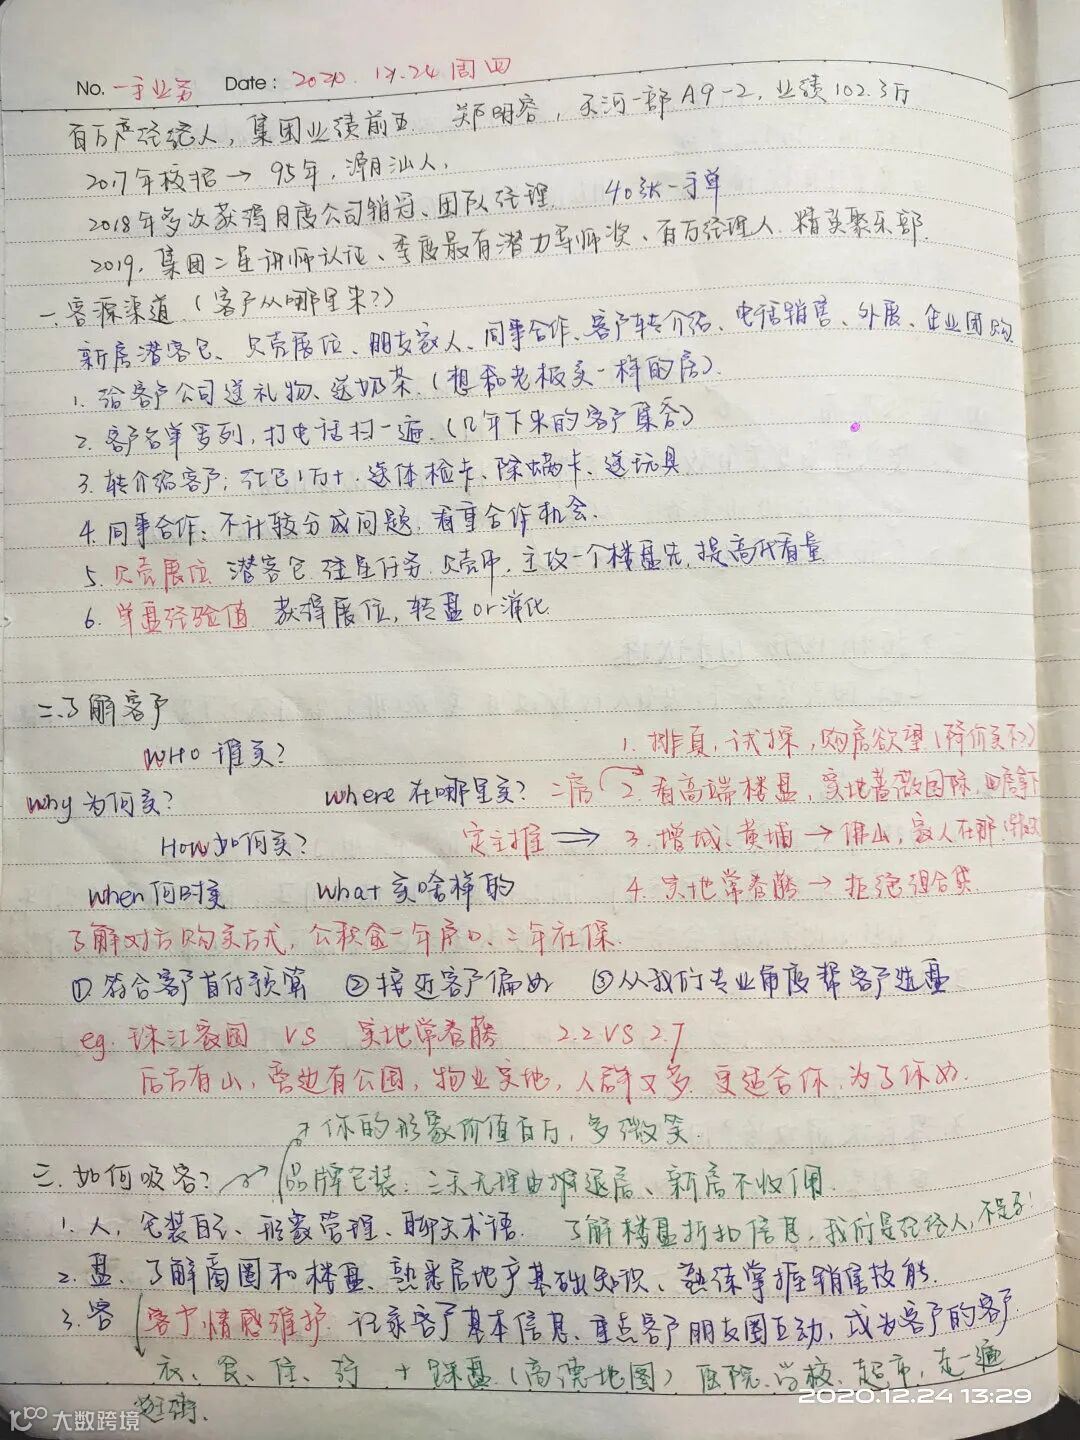 No. 一手业务 Date: 2020. 12.24 周四
百万产经纪人，集团业绩前五 郑明容，天河一部A9-2，业绩102.3万
2017年校招→95年，潮汕人，
2018年多次获得月度公司销冠、团队经理 40张一手单
2019，集团二星讲师认证、季度最有潜力导师奖、百万经理人 精英聚乐部
一.客源渠道（客户从哪里来？）
新房潜客包、贝壳展位、朋友家人、同事合作、客户转介绍、电话销售、外展、企业团购
1. 给客户公司送礼物、送奶茶.（想和老板买一样的房）.
2. 客户名单罗列，打电话扫一遍.（几年下来的客户集合）
3. 转介绍客户；红包1万+. 送体检卡、除螨卡、送玩具
4. 同事合作：不计较分成问题，看重合作机会.
5. 贝壳展位 潜客包 任务 贝壳币，主攻一个楼盘先，提高带看量
6. 单盘经验值 获得展位，转盘or消化
二.了解客户
WHO 谁买？
1. 排真，试探，购房欲望（降价买不）
Why 为何买？ where 在哪里买？ 二房 2. 看高端楼盘，实地蔷薇国际，四房拿下
How 如何买？ 定主推 → 3. 增城、黄埔→佛山，家人在那
when 何时买 what 买啥样的 4. 实地常春藤→拒绝组合贷
了解对方购买方式，公积金一年户口、二年社保.
① 符合客户首付预算 ② 接近客户偏好 ③ 从我们专业角度帮客户选盘
eg. 珠江家园 VS 实地常春藤 2.2 VS 2.7
后方有山，旁边有公园，物业实地，人群又多. 更适合你，为了你好.
→ 你的形象价值百万，多微笑.
三. 如何吸客？ → 品牌包装：三天无理由退房、新房不收佣.
1. 人，包装自己、形象管理、聊天术语. 了解楼盘折扣信息，我们是经纪人，不是
2. 盘、了解商圈和楼盘、熟悉房地产基础知识、熟练掌握销售技能.
3. 客 客户情感维护. 记录客户基本信息、重点客户朋友圈互动，成为客户的客户.
衣、食、住、行 + 踩盘（高德地图）医院、学校、超市，走一遍
逛街.
2020.12.24 13:29
大数跨境